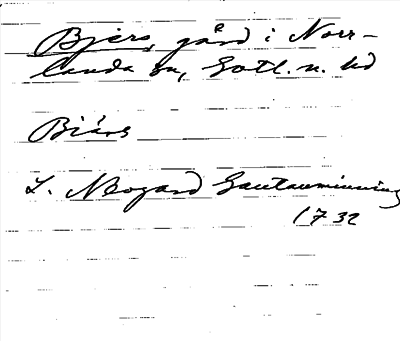 Bjers, gård i Norr-
landa sn, Gotl. n. hd
Biärs
L. Neogard Gautauminning
1732